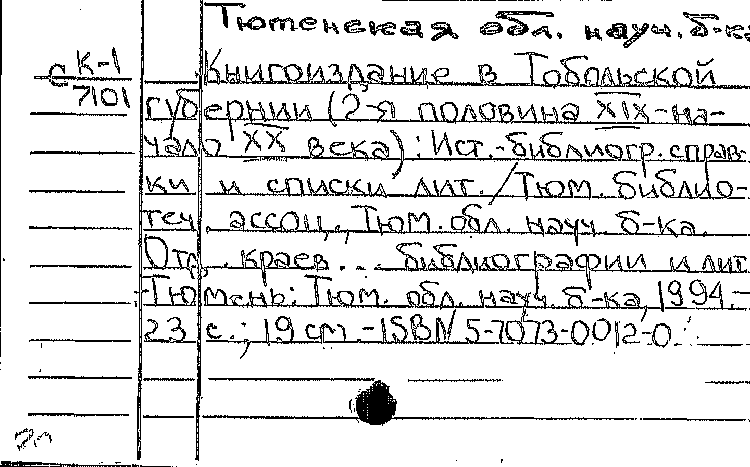 Тюменская обл. науч. б-ка
С К-1
7101
Книгоиздание в Тобольской
губернии (2-я половина XIX-на-
чало XX века): Ист.-библиогр. справ-
ки и списки лит. / Тюм. библио-
теч. ассоц., Тюм. обл. науч. б-ка.
Отд. краев... библиографии и лит.
-Тюмень: Тюм. обл. науч. б-ка, 1994.-
23 с.; 19 см.-ISBN 5-7073-0012-0.